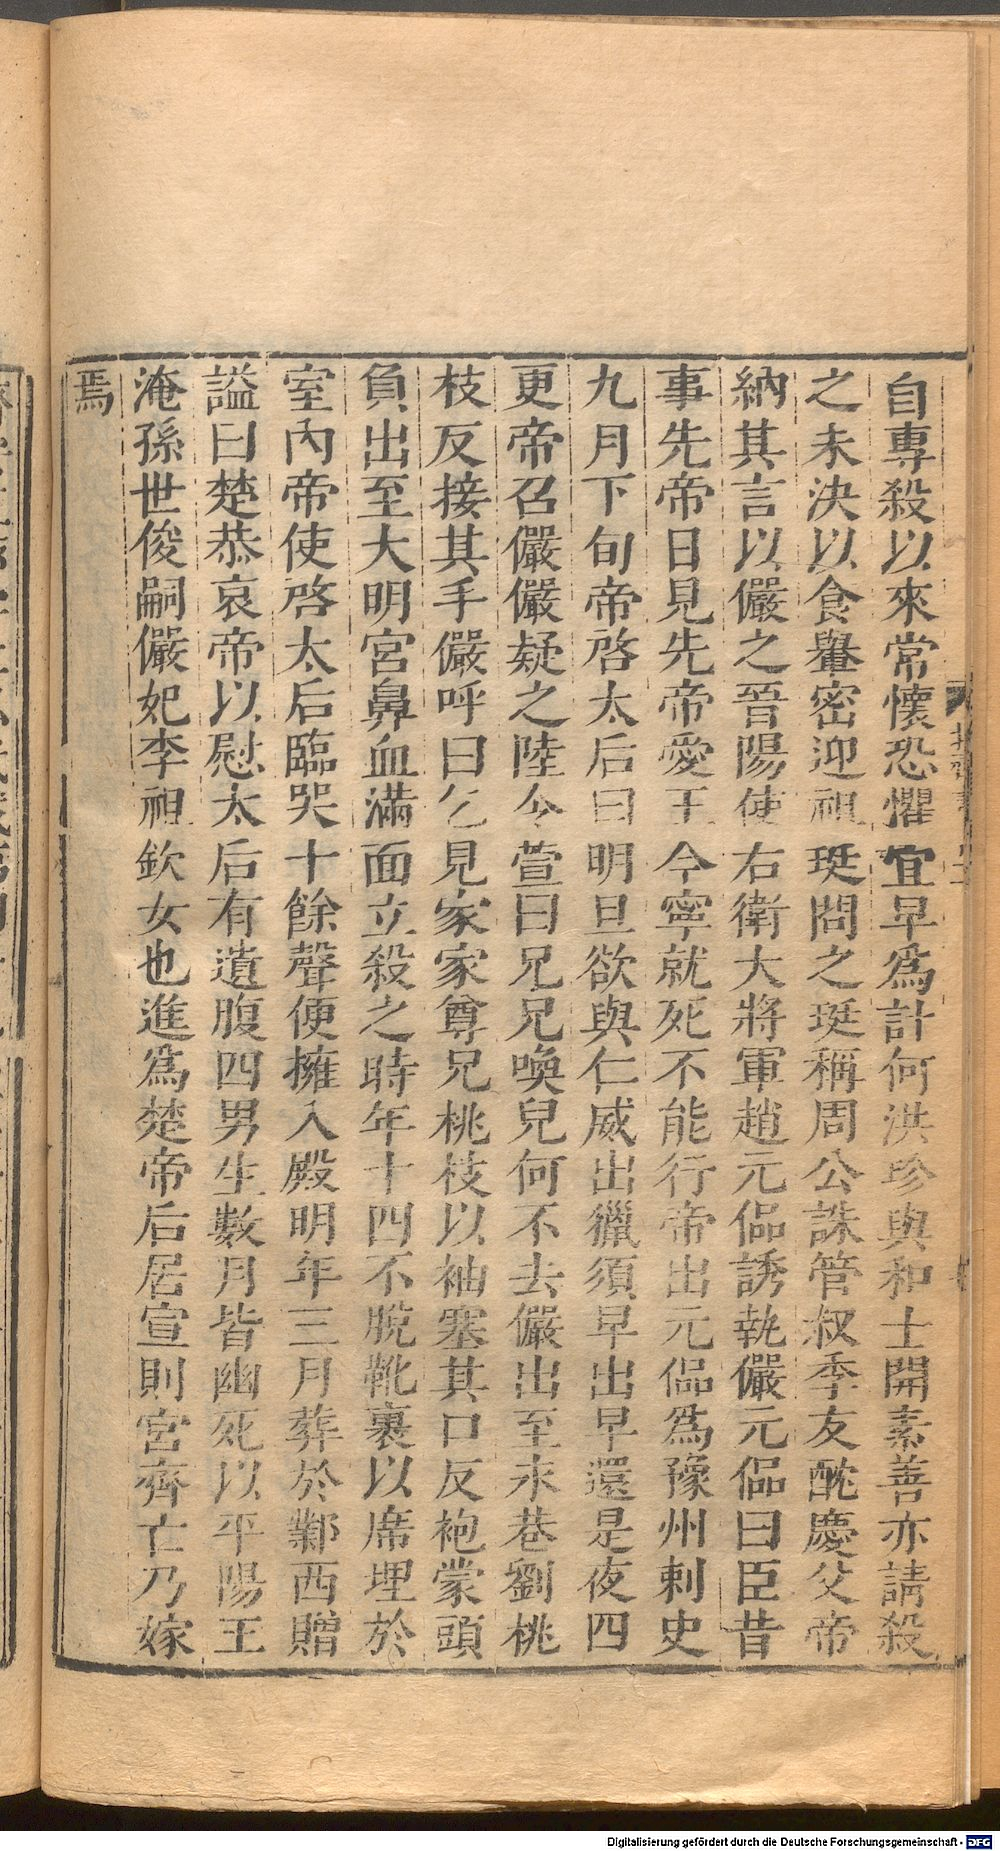 自專殺以來常懷恐懼宜早爲計何洪珍與和士開素善亦請殺
之未決以食轝密迎祖珽問之珽稱周公誅管叔季友酖慶父帝
納其言以儼之晉陽使右衛大將軍趙元侃誘執儼元侃曰臣昔
事先帝日見先帝愛王今寧就死不能行帝出元侃爲豫州刺史
九月下旬帝啓太后曰明旦欲與仁威出獵須早出早還是夜四
更帝召儼儼疑之陸令萱曰兄兄喚兒何不去儼出至永巷劉桃
枝反接其手儼呼曰乞見家家尊兄桃枝以袖塞其口反袍蒙頭
負出至大明宮鼻血滿面立殺之時年十四不脫靴裹以席埋於
室內帝使啓太后臨哭十餘聲便擁入殿明年三月葬於鄴西贈
謚曰楚恭哀帝以慰太后有遺腹四男生數月皆幽死以平陽王
淹孫世俊嗣儼妃李祖欽女也進爲楚帝后居宣則宮齊亡乃嫁
焉
Digitalisierung gefördert durch die Deutsche Forschungsgemeinschaft - DFG